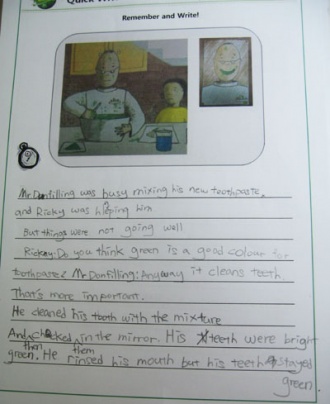 Quick Wri
Remember and Write!
Mr Donfilling was busy mixing his new toothpaste.
and Ricky was helping him
But things were not going well
Ricky: Do you think green is a good colour for
toothpaste? Mr Donfilling: Anyway it cleans teeth.
That's more important.
He cleaned his tooth with the mixture
And then checked them in the mirror. His teeth were bright
green. He rinsed his mouth but his teeth stayed
green.